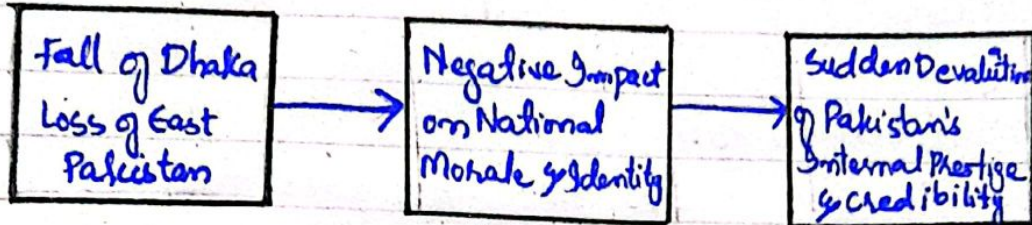 Fall of Dhaka
Loss of East
Pakistan
Negative Impact
on National
Morale & Identity
Sudden Devalution
of Pakistan's
Internal Prestige
& credibility